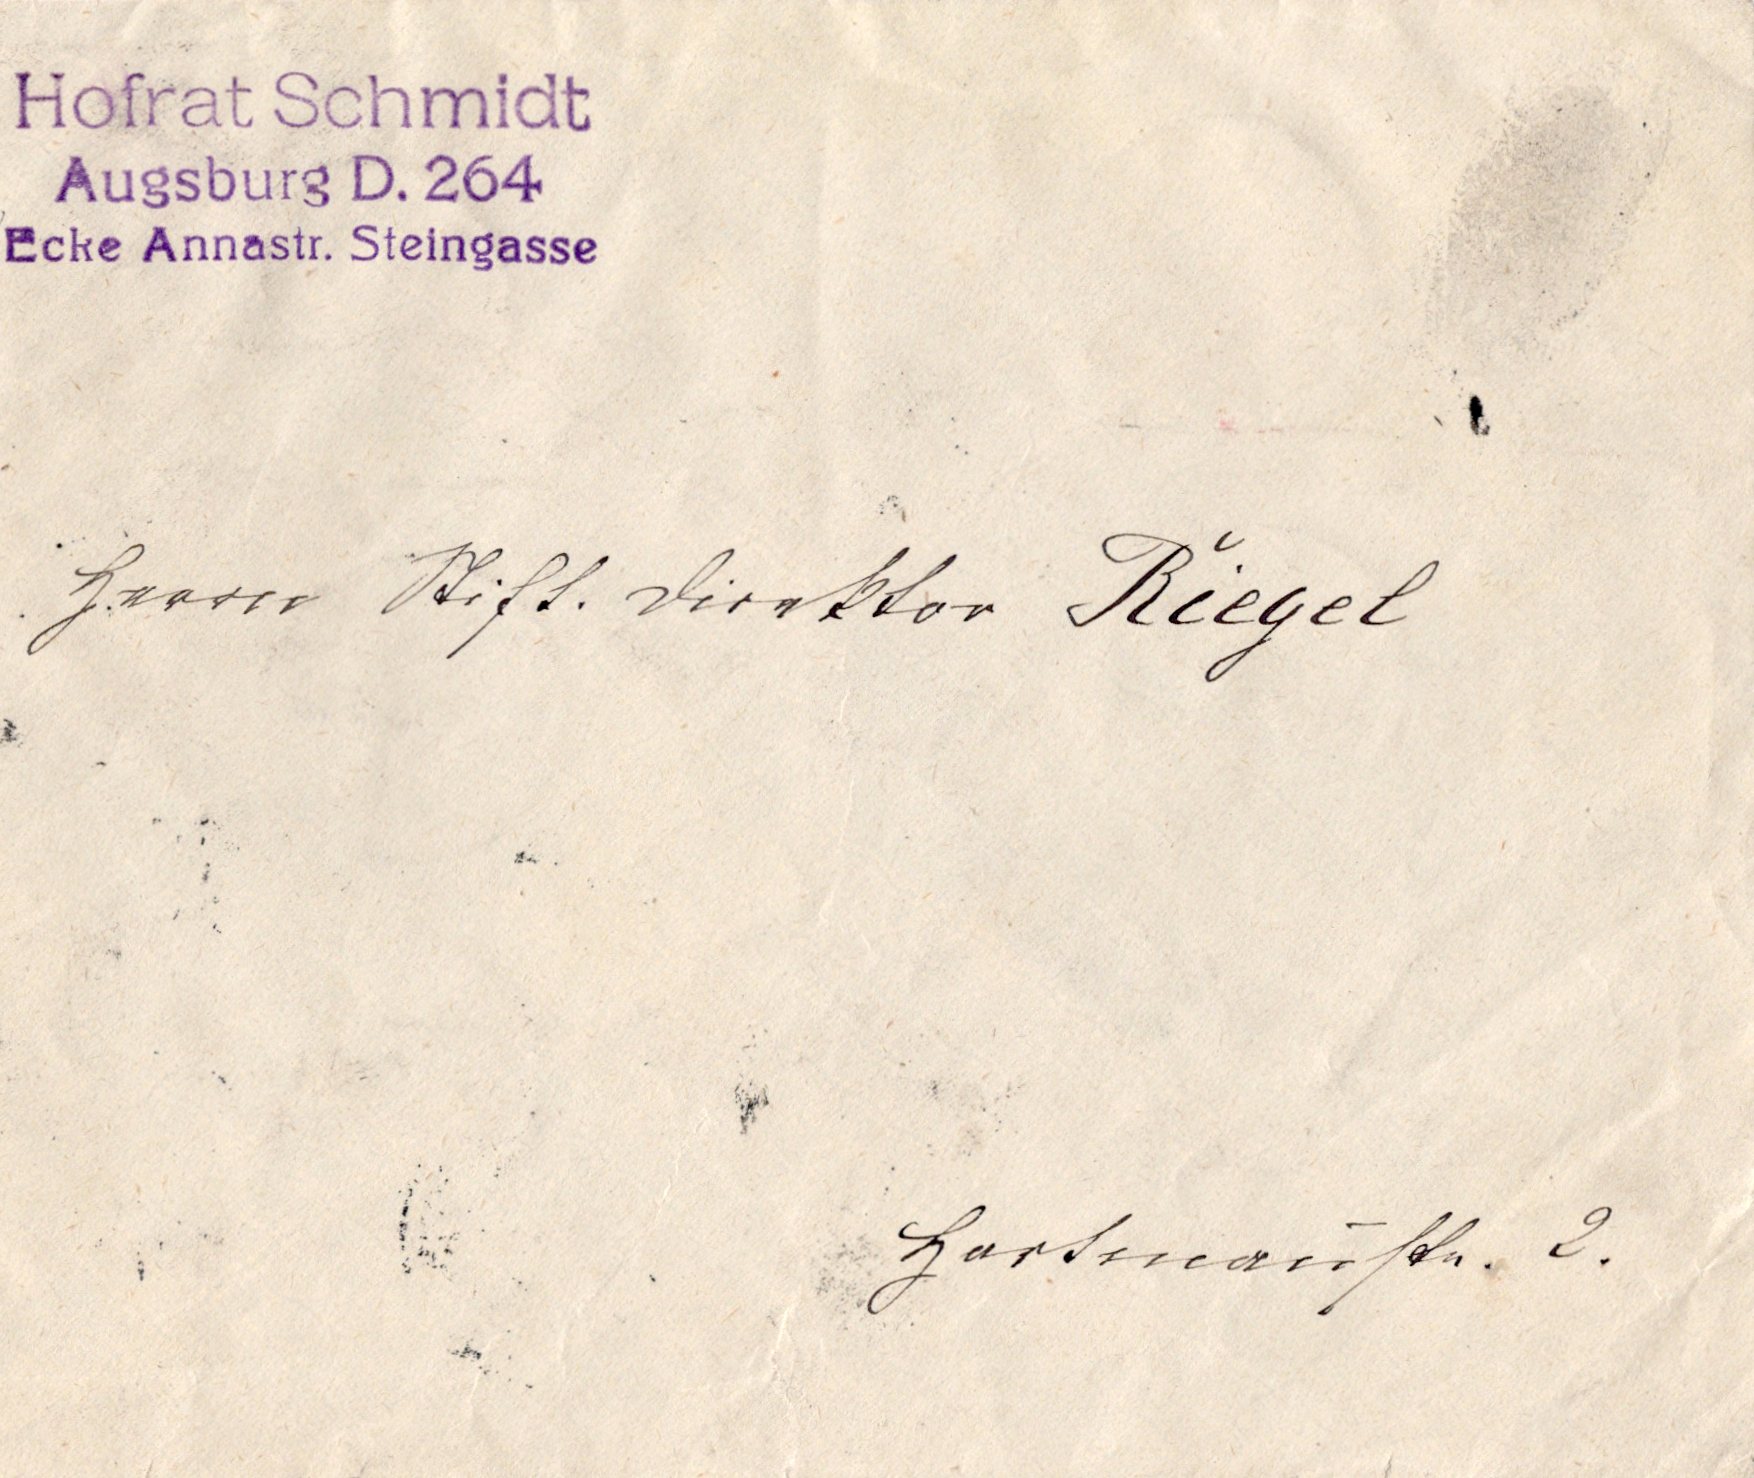 Hofrat Schmidt
Augsburg D. 264
Ecke Annastr. Steingasse
Herrn Stift. Direktor Riegel
Hartmañstr. 2.